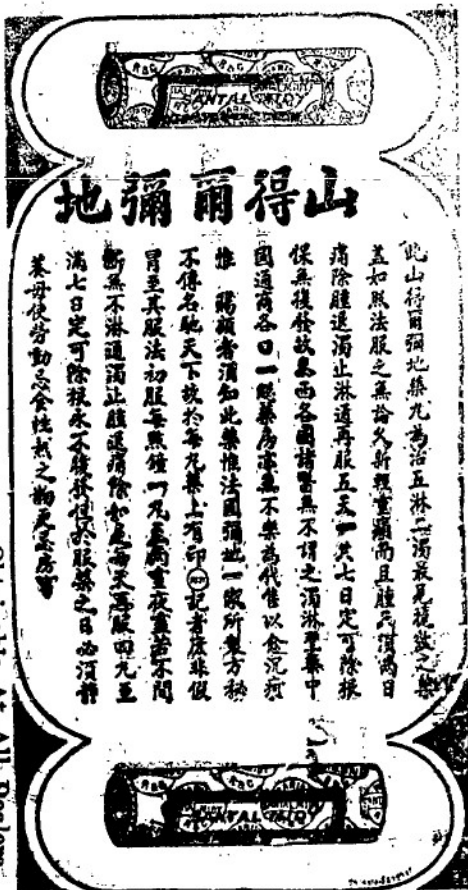 SANTAL MIDY
地彌爾得山
此山得爾彌地藥丸為治五淋二濁最見捷效之藥
蓋如照法服之無論久新輕重濁而且腫只須兩日
痛除腫退濁止淋通再服五天 共七日定可除根
保無復發故泰西各國諸醫無不謂之濁淋聖藥中
國通商各口一 藥房亦無不樂為代售以愈沉疴
惟 賜顧者須知此藥惟法國彌地一家所製方秘
不傳名馳天下故於每丸藥上有印 MIDY 記者庶非假
冒至其服法初服每點鐘一丸至 晝夜 不間
斷無不淋通濁止腫退痛除如是每天再服四丸至
滿七日定可除根永不復發但於服藥之日必須靜
養毋使勞動忌食性熱之物更忌房
SANTAL MIDY
At All